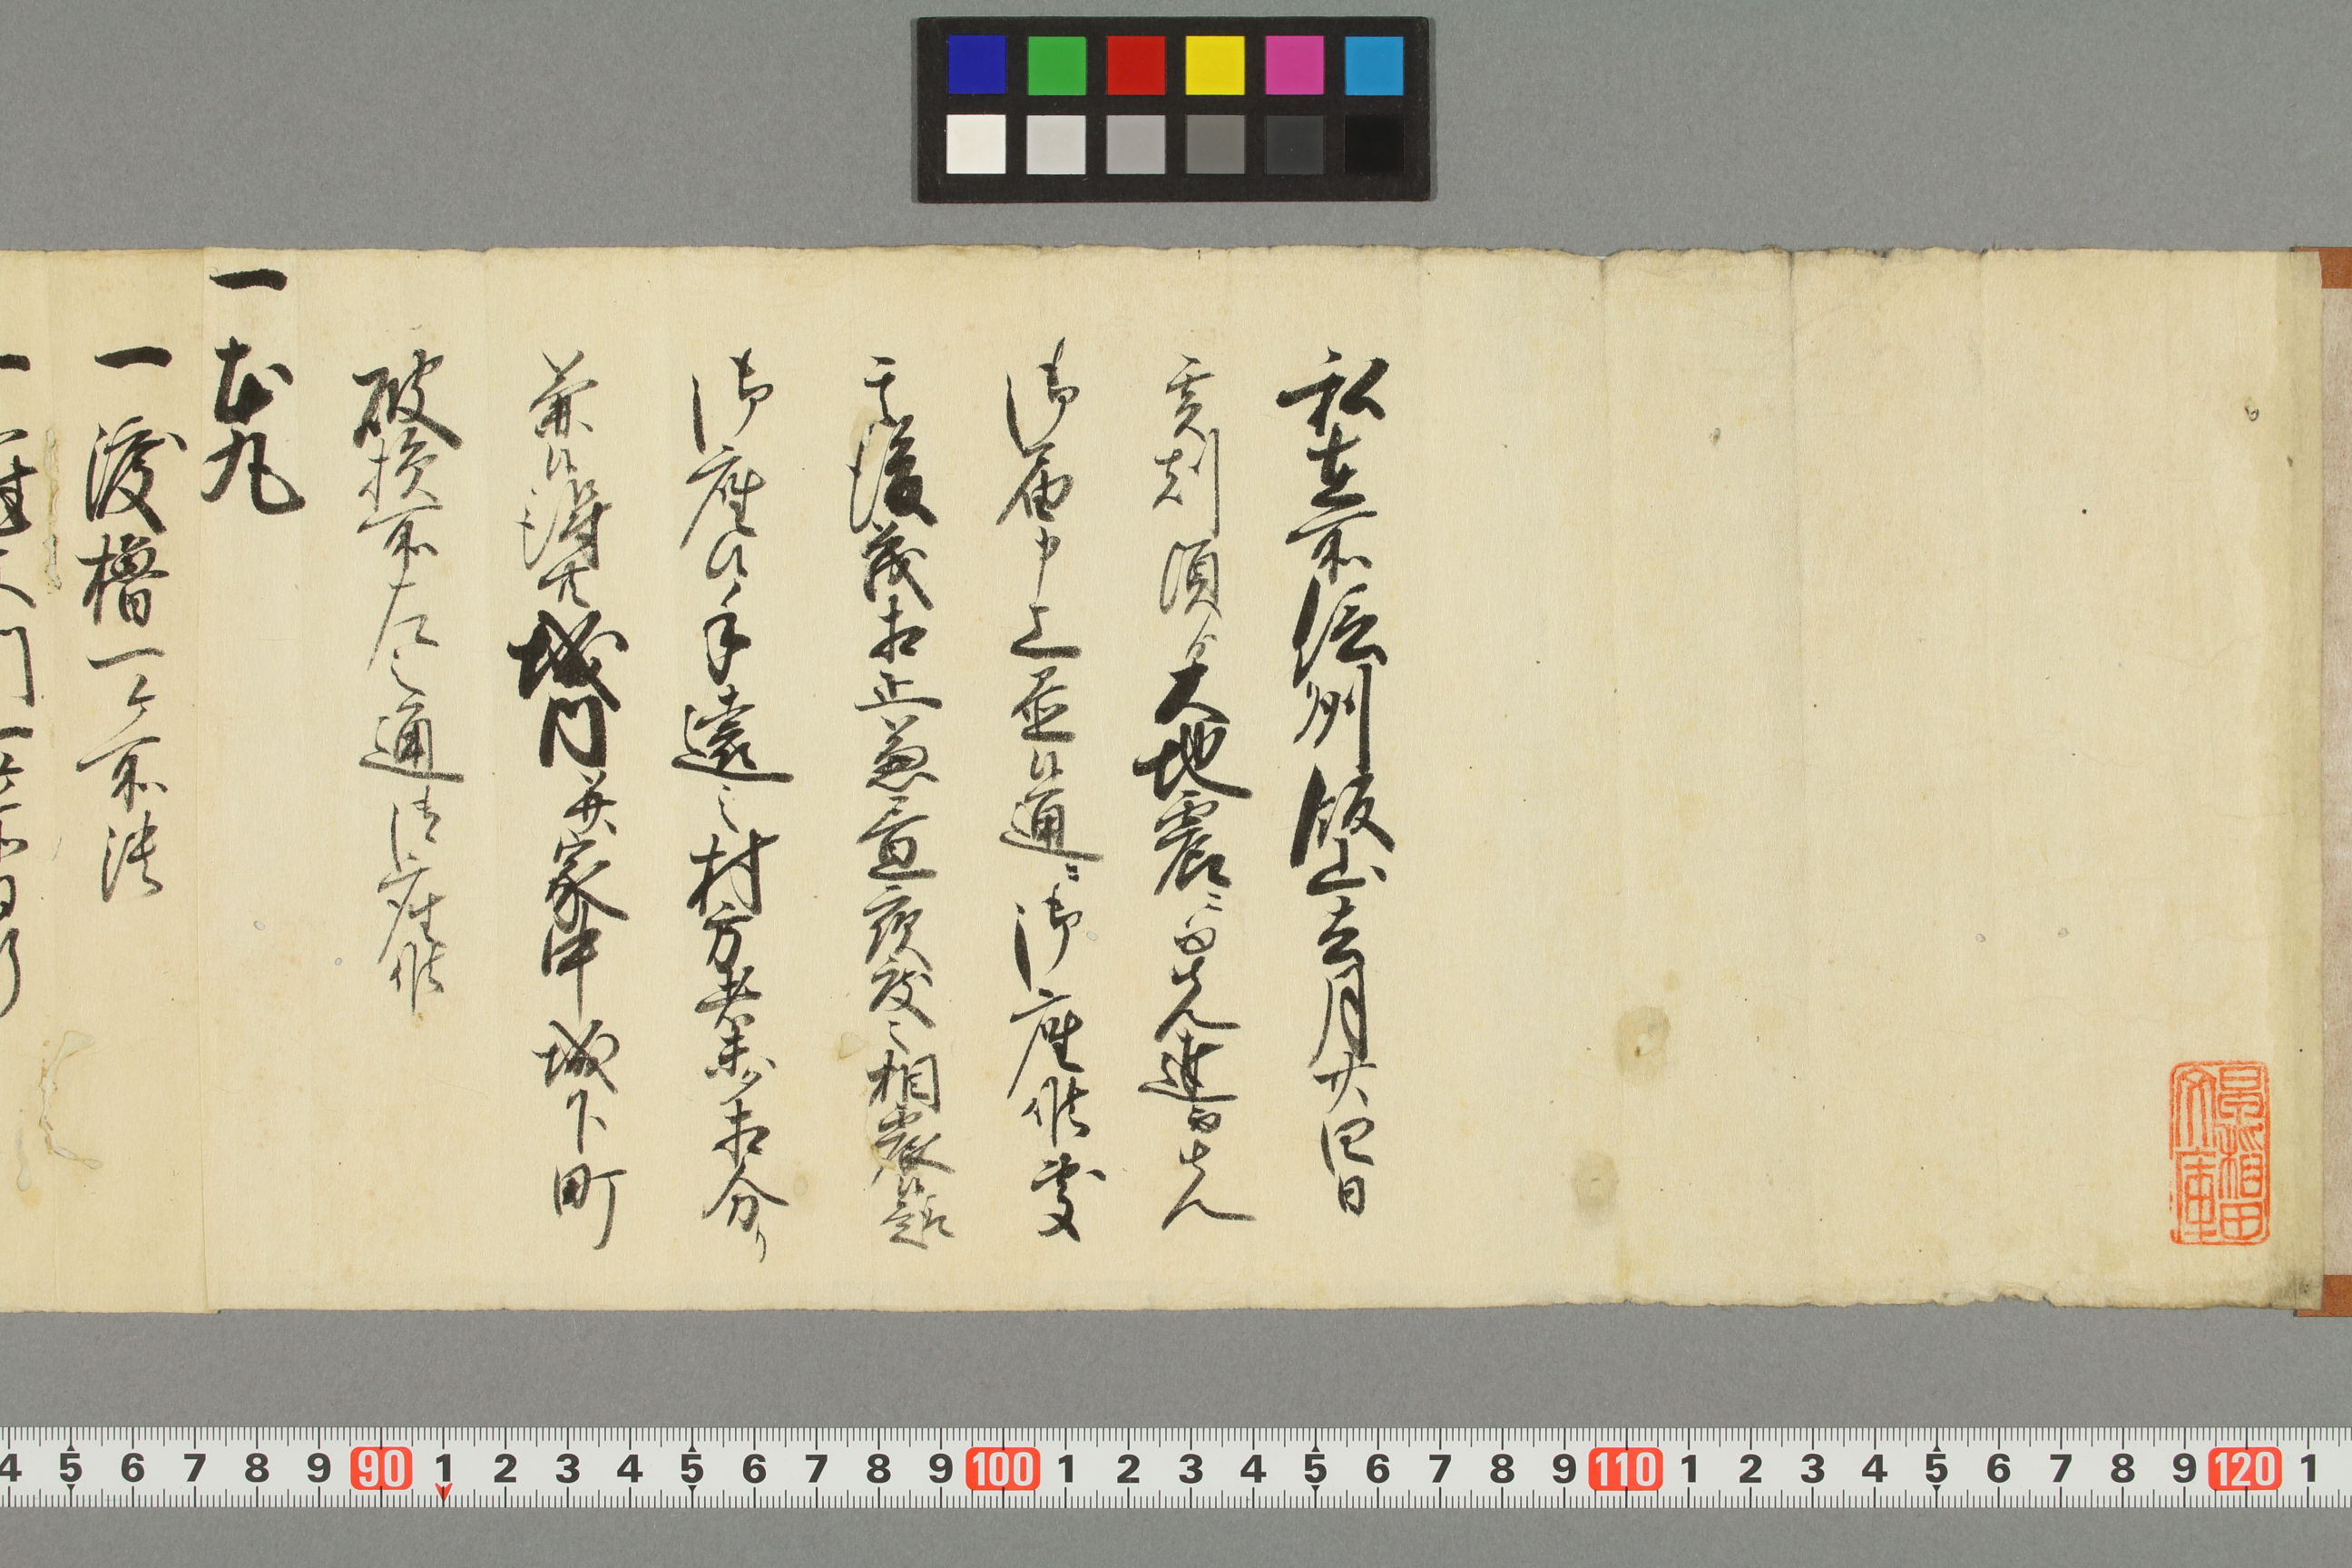 私在所信州飯山去月廿四日
亥刻頃ゟ大地震ニ而先達而先
御届申上置候通ニ御座候処
其後茂相止兼昼夜度々相震候趣
御座候手遠之村方者未相分り
兼候得共城内并家中城下町
破損所左之通御座候
一本丸
一渡櫓一ヶ所潰